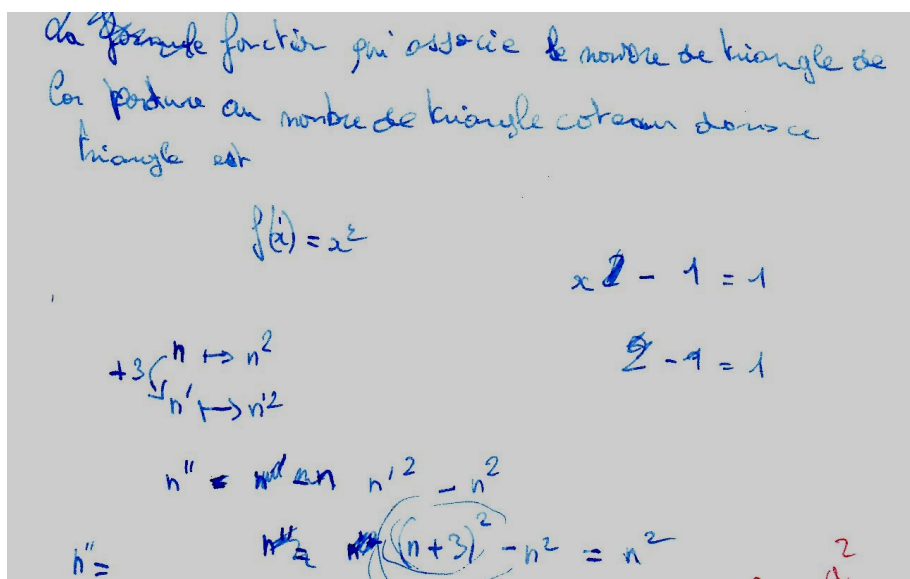 La fonction qui associe le nombre de triangle de
la bordure au nombre de triangle coteau dans ce
triangle est
f(x) = x²
x 2 - 1 = 1
+3 n ↦ n²
2 - 1 = 1
n' ↦ n'²
n'' = n'² - n²
(n+3)² - n² = n²
n'' =
2